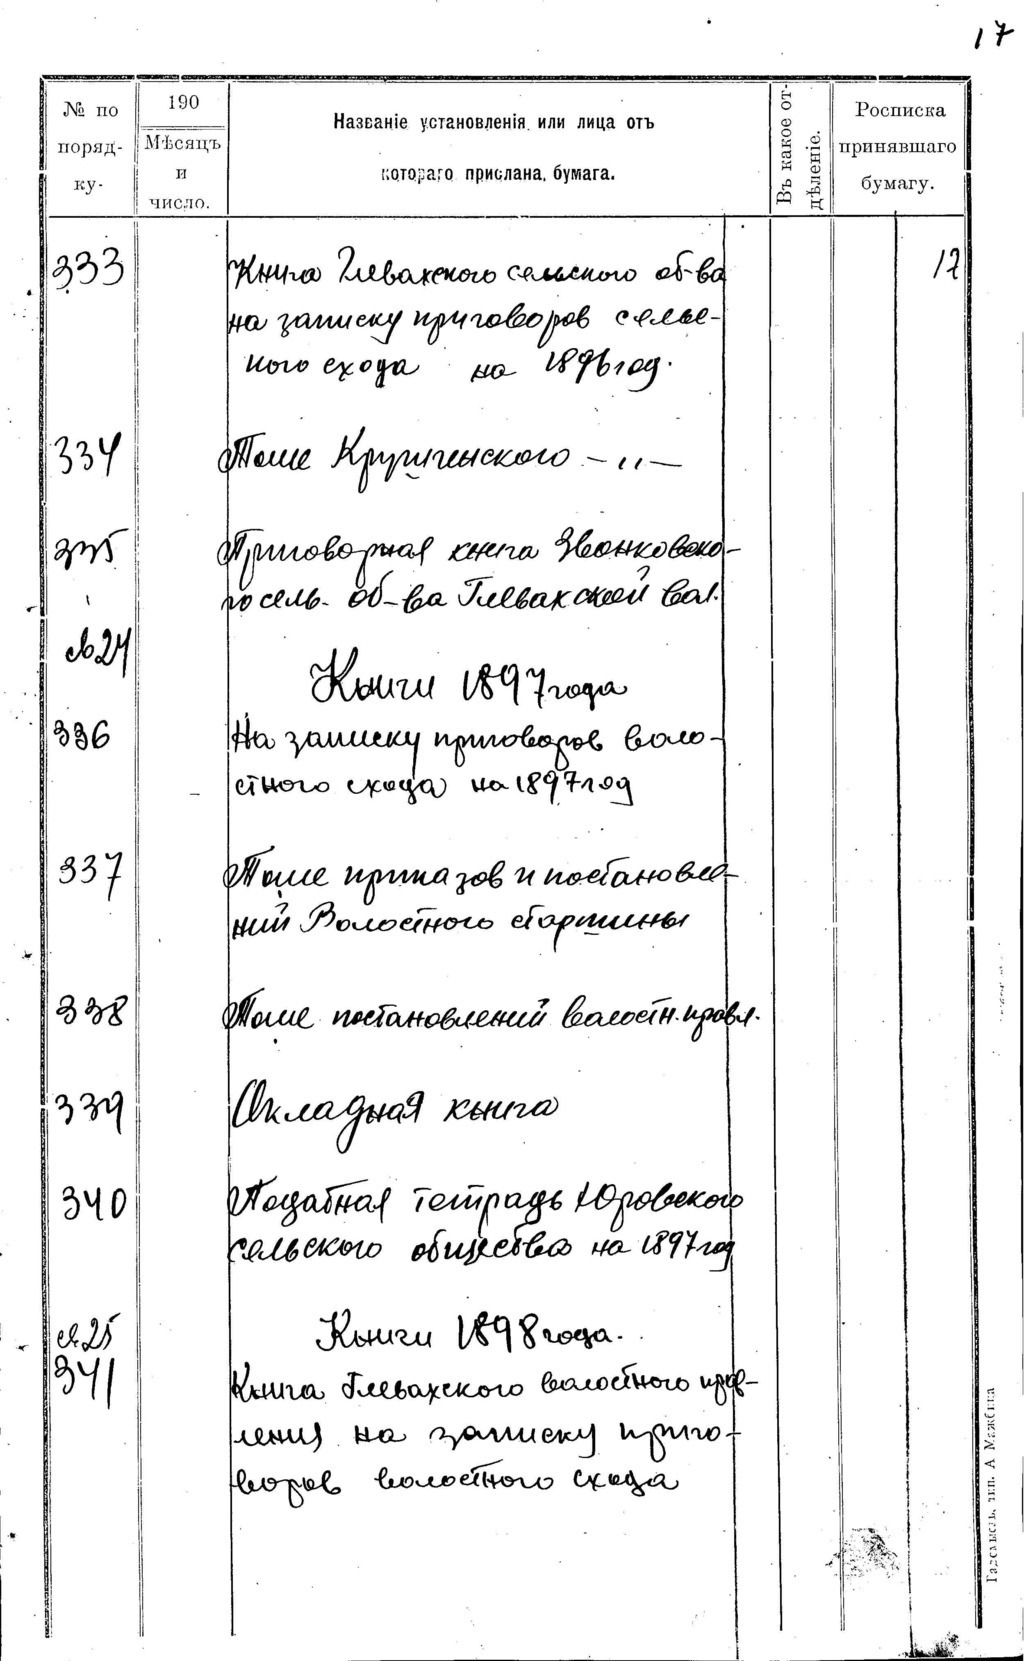 17
№ по поряд- ку-
190
Мѣсяцъ и число.
Названіе установленія или лица отъ
котораго прислана бумага.
Въ какое от- дѣленіе.
Росписка принявшаго бумагу.
333
Книга Глевахского сельского об-ва
на записку приговоров сель-
кого схода на 1896 год.
17
334 Тоже Крушенского – „ –
335 Приговорная книга Звонковско-
го сель. об-ва Глевахской вол.
св 24
Книги 1897 года
336 На записку приговоров воло-
стного схода на 1897 год
337 Тоже приказов и постановле-
ний Волостного старшины
338 Тоже постановлений волостн. правл.
339 Окладная книга
340 Податная тетрадь Юровского
сельского общества на 1897 год
св. 25 Книги 1898 года.
341 Книга Глевахского волостного прав-
ления на записку приго-
воров волостного схода
тип. А